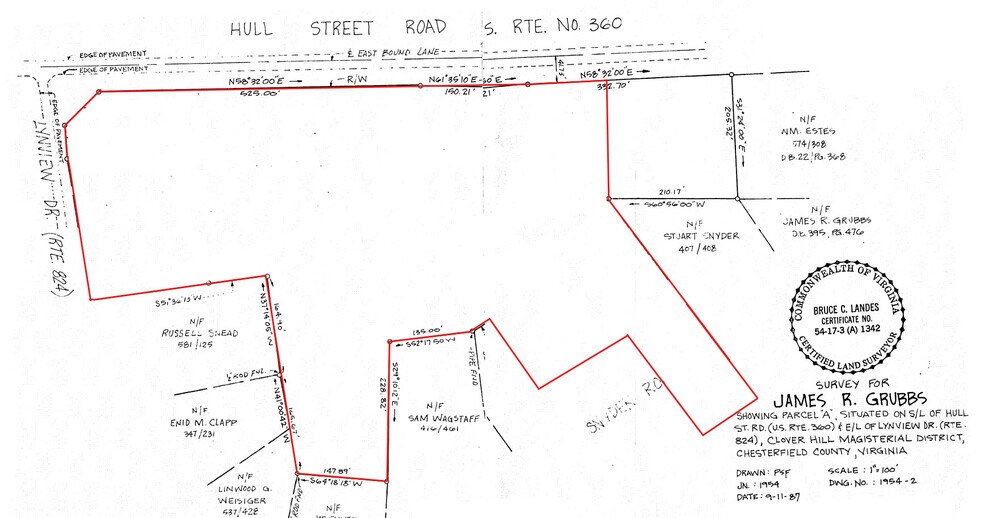 HULL STREET ROAD S. RTE. NO. 360
EDGE OF PAVEMENT
℄ EAST BOUND LANE
EDGE OF PAVEMENT
N58°32'00"E
R/W
N61°35'10"E
N58°32'00"E
525.00'
150.21'
21'
332.70'
EDGE OF PAVEMENT
LYNVIEW DR. (RTE. 824)
S31°24'00"E
205.32'
N/F
574/308
D.B.22/PG.368
210.17'
S60°56'00"W
N/F
STUART SNYDER
407/408
N/F
JAMES R. GRUBBS
D.B. 395, PG. 476
S51°36'13"W
N/F
RUSSELL SNEAD
581/125
N37°14'05"W
164.70'
N/F
ENID M. CLAPP
347/231
N41°00'42"W
165.67'
135.00'
S52°17'50"W
S29°10'12"E
228.82'
PIPE FND
N/F
SAM WAGSTAFF
416/461
SNYDER RD.
147.89'
S64°18'18"W
N/F
LINWOOD G.
WEISIGER
537/428
ROD FND
N/F
COMMONWEALTH OF VIRGINIA
BRUCE C. LANDES
CERTIFICATE NO.
54-17-3 (A) 1342
CERTIFIED LAND SURVEYOR
SURVEY FOR
JAMES R. GRUBBS
SHOWING PARCEL "A", SITUATED ON S/L OF HULL
ST. RD. (U.S. RTE. 360) & E/L OF LYNVIEW DR. (RTE.
824), CLOVER HILL MAGISTERIAL DISTRICT,
CHESTERFIELD COUNTY, VIRGINIA
DRAWN: PSF SCALE: 1"=100'
JN.: 1954 DWG. NO.: 1954-2
DATE: 9-11-87